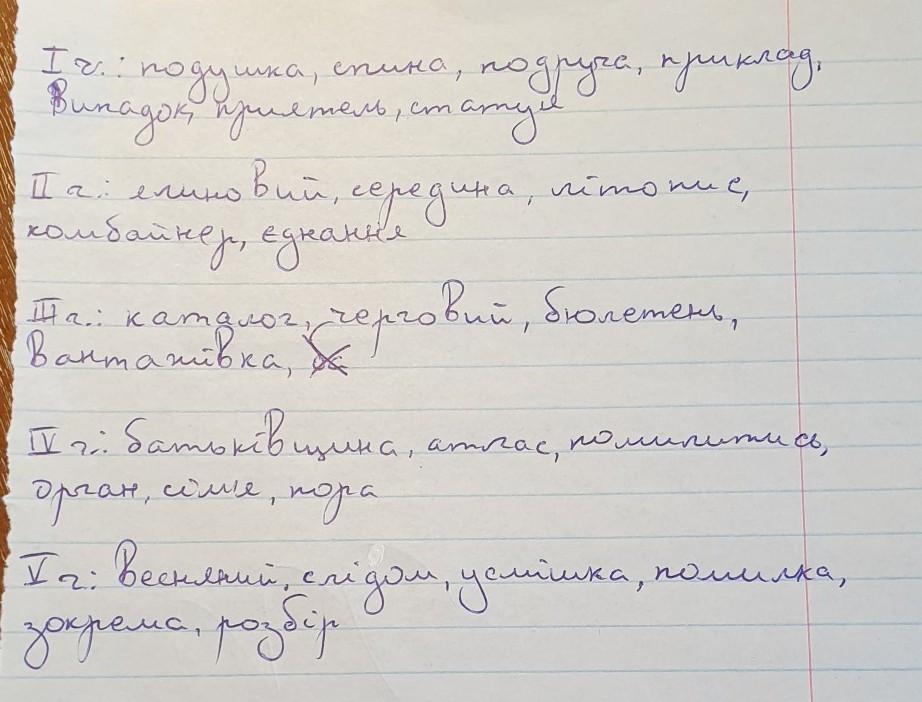 I г.: подушка, спина, подруга, приклад,
Випадок, приятель, статуя
II г.: ялиновий, середина, літопис,
комбайнер, єднання
III г.: каталог, черговий, бюлетень,
Вантажівка,
IV г.: батьківщина, атлас, помилитись,
орган, сім'я, пора
V г.: Весняний, слідом, усмішка, помилка,
зокрема, розбір